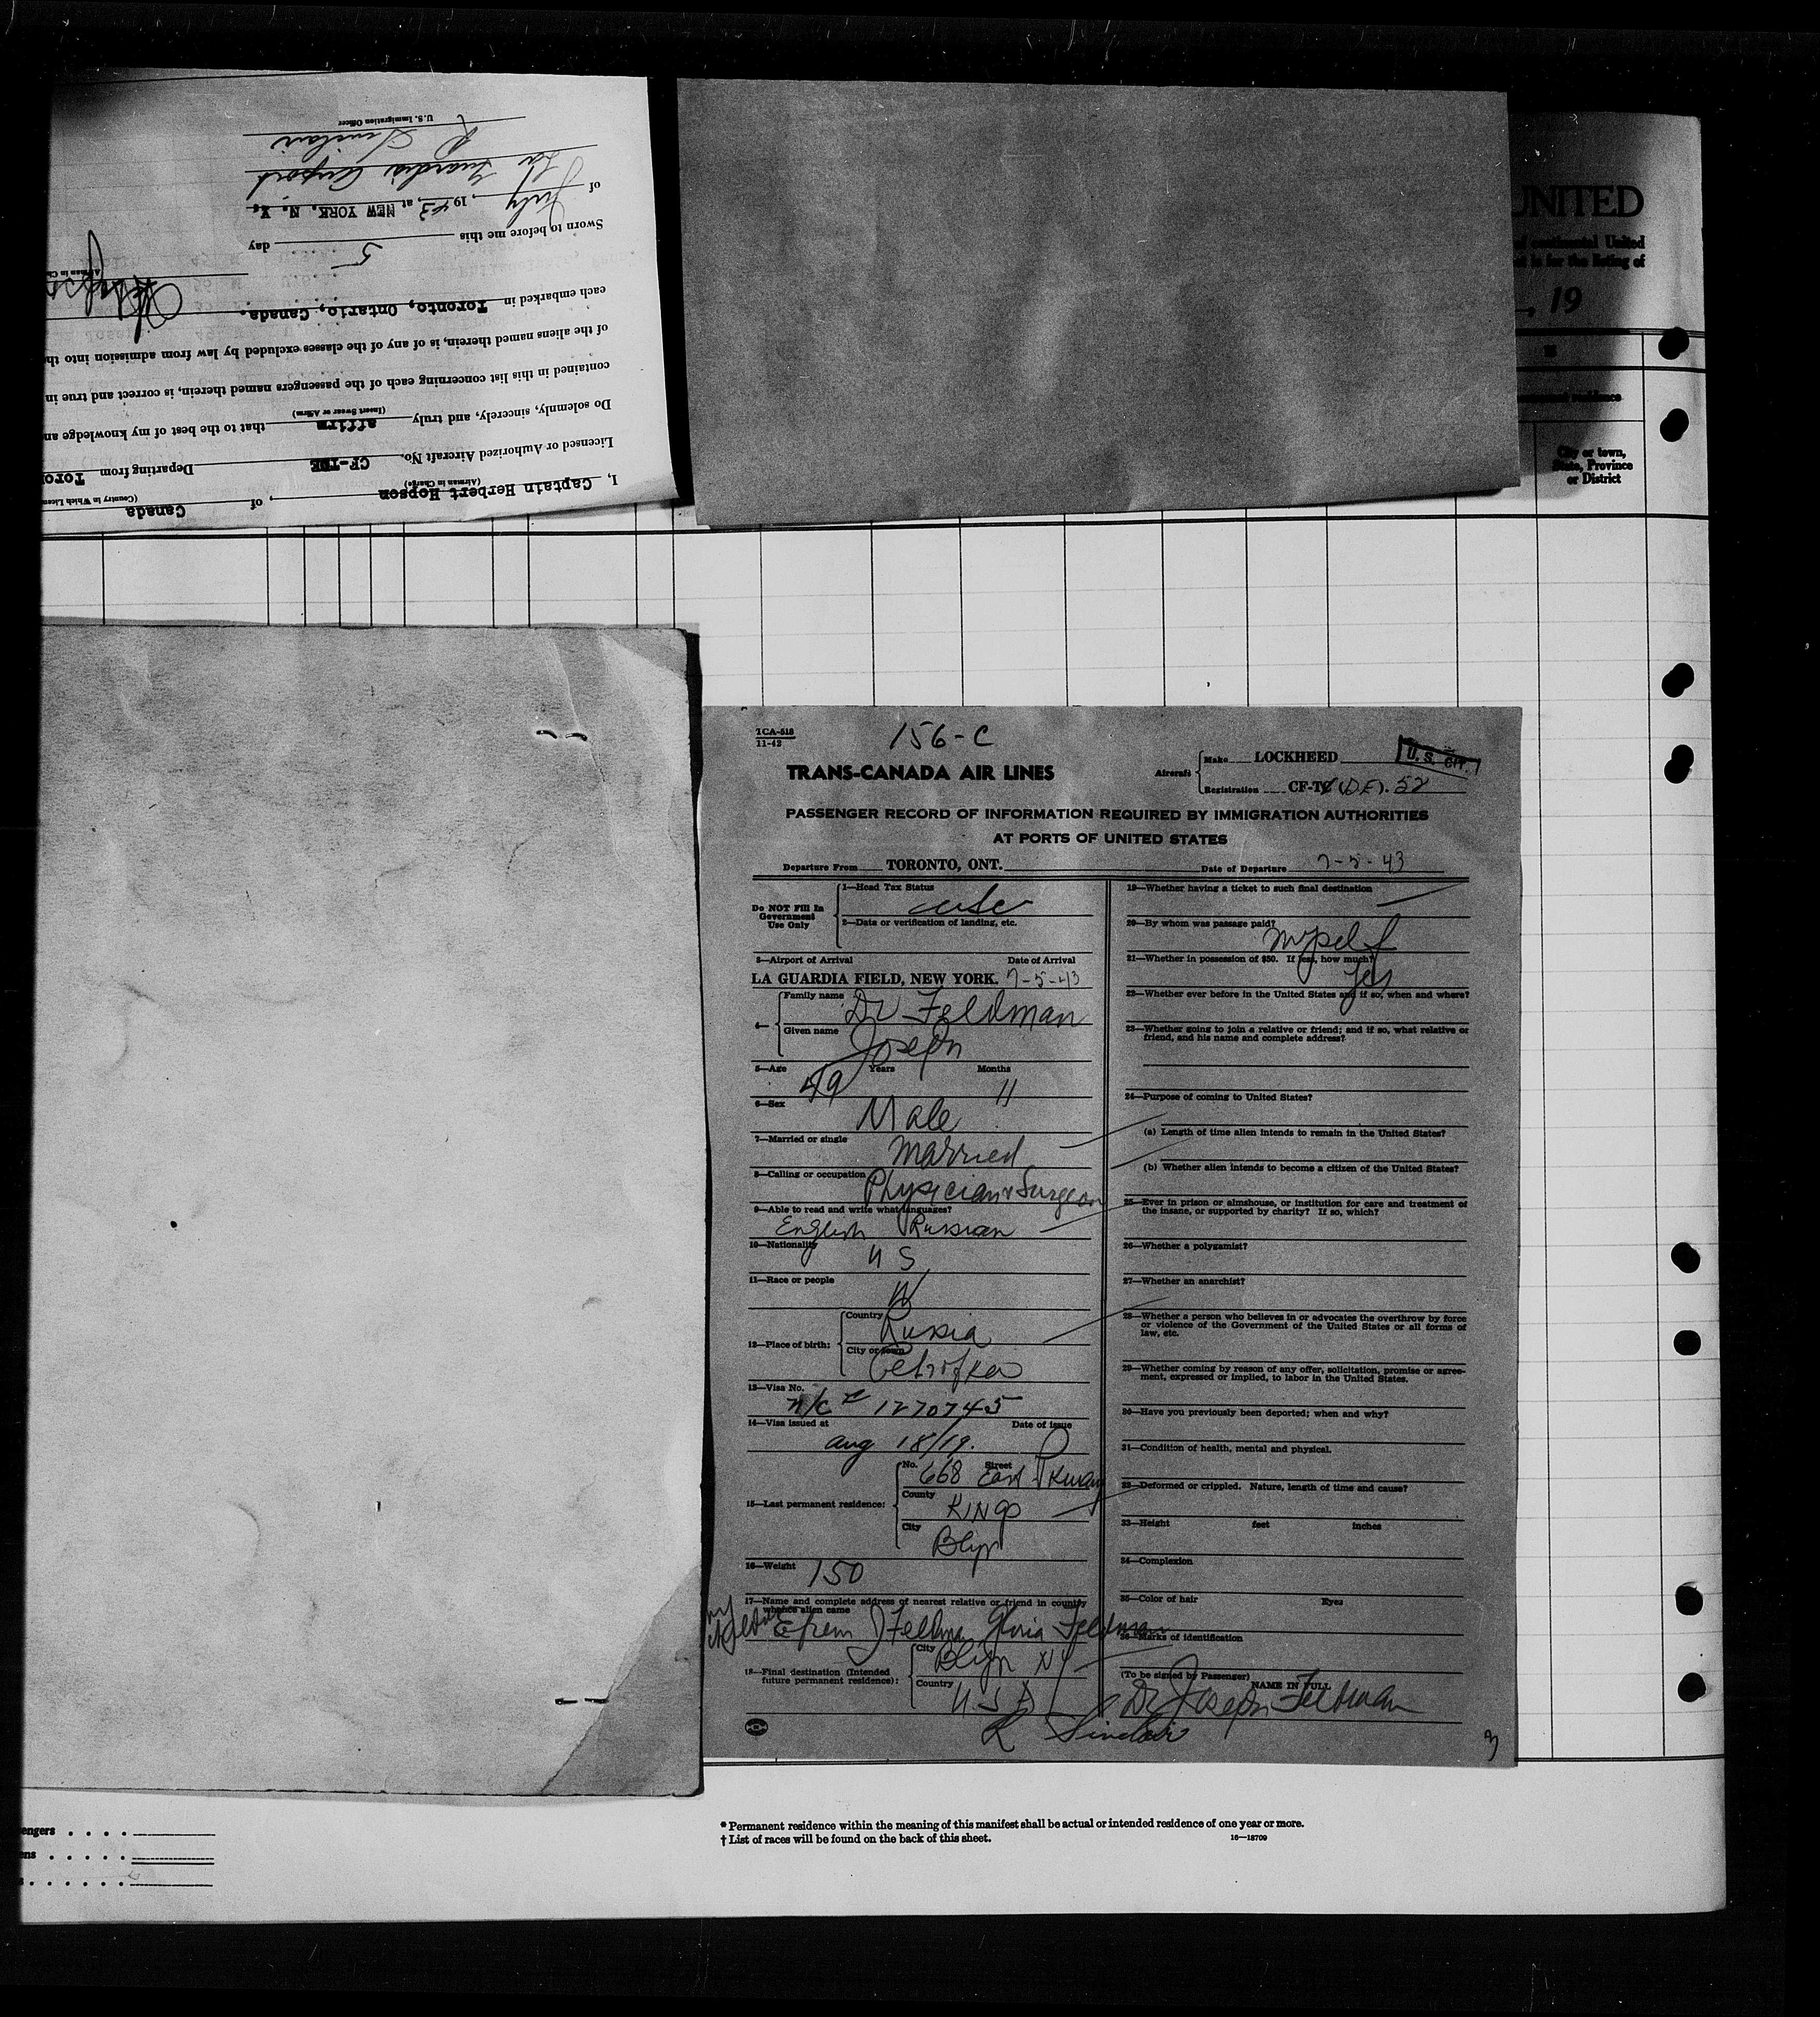 U.S. Immigration Officer
R Sinclair
La Guardia Airport
of July, 1943, at NEW YORK, N. Y.
Sworn to before me this 5 day
Airman in Ch
each embarked in Toronto, Ontario, Canada.
of the aliens named therein, is of any of the classes excluded by law from admission into th
contained in this list concerning each of the passengers named therein, is correct and true in
(Insert Swear or Affirm)
Do solemnly, sincerely, and truly affirm that to the best of my knowledge an
Licensed or Authorized Aircraft No. CF-TDE Departing from Toro
(Airman in Charge) (Country in Which Licen
I, Captain Herbert Hopson, of Canada
UNITED
of continental United
for the listing of
, 19
residence
City or town,
State, Province
or District
TCA-518
11-42
156-C
TRANS-CANADA AIR LINES
Aircraft
Make LOCKHEED
U. S. CIT.
Registration CF-TC (DE). 52
PASSENGER RECORD OF INFORMATION REQUIRED BY IMMIGRATION AUTHORITIES
AT PORTS OF UNITED STATES
Departure From TORONTO, ONT. Date of Departure 7-5-43
Do NOT Fill In
Government
Use Only
1—Head Tax Status
usc
2—Date or verification of landing, etc.
3—Airport of Arrival Date of Arrival
LA GUARDIA FIELD, NEW YORK. 7-5-43
4—
Family name Dr Feldman
Given name Joseph
5—Age 49 Years Months 11
6—Sex Male
7—Married or single Married
8—Calling or occupation Physician & Surgeon
9—Able to read and write what languages?
English Russian
10—Nationality U S
11—Race or people W
12—Place of birth:
Country Russia
City or town Petrofka
13—Visa No. N/C # 1270745
14—Visa issued at Date of issue
Aug 18/19.
15—Last permanent residence:
No. 668 Street East Pkway
County Kings
City Blyn
16—Weight 150
17—Name and complete address of nearest relative or friend in country
whence alien came
my
Efrem J Feldman Gloria Feldman
18—Final destination (Intended
future permanent residence):
City Blyn NY
Country U S A
19—Whether having a ticket to such final destination
20—By whom was passage paid?
Myself
21—Whether in possession of $50. If less, how much?
Yes
22—Whether ever before in the United States and if so, when and where?
23—Whether going to join a relative or friend; and if so, what relative or
friend, and his name and complete address?
24—Purpose of coming to United States?
(a) Length of time alien intends to remain in the United States?
(b) Whether alien intends to become a citizen of the United States?
25—Ever in prison or almshouse, or institution for care and treatment of
the insane, or supported by charity? If so, which?
26—Whether a polygamist?
27—Whether an anarchist?
28—Whether a person who believes in or advocates the overthrow by force
or violence of the Government of the United States or all forms of
law, etc.
29—Whether coming by reason of any offer, solicitation, promise or agree-
ment, expressed or implied, to labor in the United States.
30—Have you previously been deported; when and why?
31—Condition of health, mental and physical.
32—Deformed or crippled. Nature, length of time and cause?
33—Height feet inches
34—Complexion
35—Color of hair Eyes
36—Marks of identification
(To be signed by Passenger)
NAME IN FULL
Dr Joseph Feldman
R Sinclair
3
engers . . . .
ens . . . . .
* Permanent residence within the meaning of this manifest shall be actual or intended residence of one year or more.
† List of races will be found on the back of this sheet.
16—18709